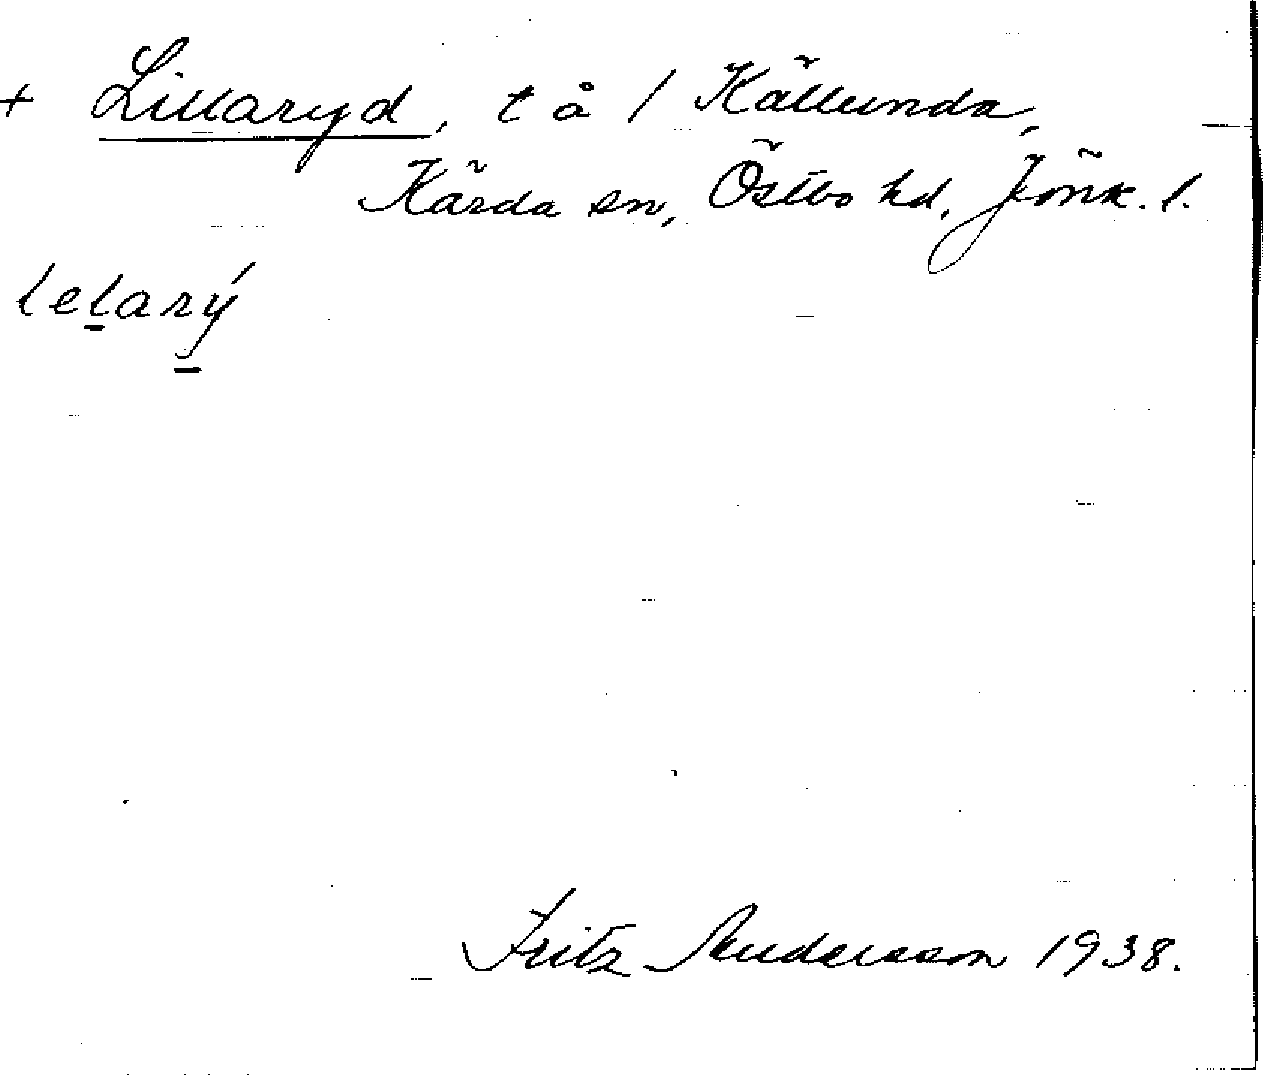 + Lillaryd, t å 1 Källunda,
Kärda sn, Östbo hd, Jönk. l.
lelarý
Fritz Andersson 1938.